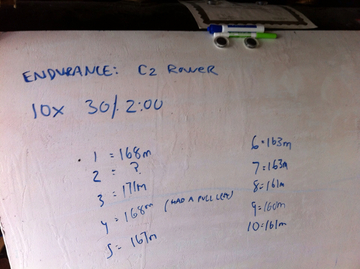 ENDURANCE: C2 ROWER
10X 30/2:00
1 = 168m
2 = ?
3 = 171m
4 = 168m (HAD A PULL LEFT)
5 = 167m
6 = 163m
7 = 163m
8 = 161m
9 = 160m
10 = 161m